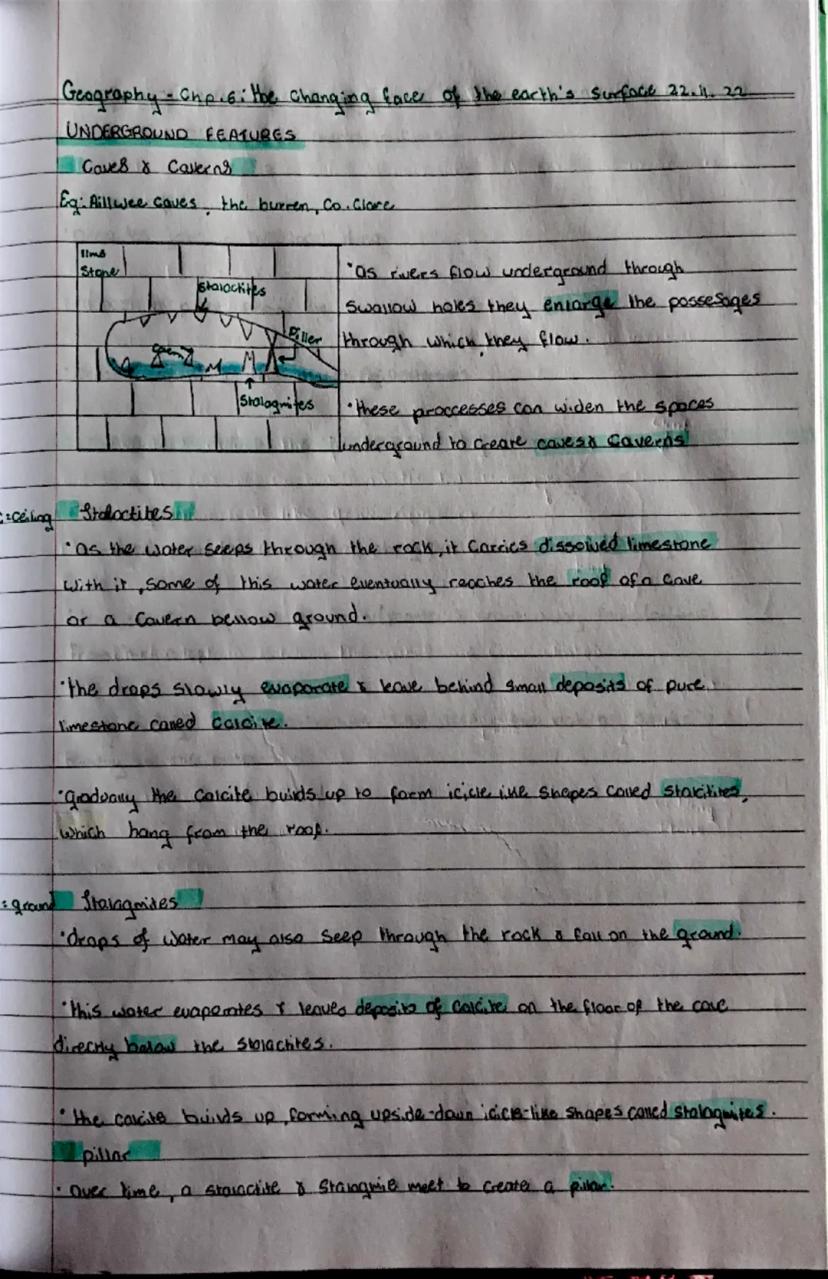 Geography - Chp. 6: the changing face of the earth's surface 22.11.22
UNDERGROUND FEATURES
Caves & Caverns
Eg: Aillwee caves, the burren, Co. Clare
lime
Stone
Stalactites
Piller
Stalagmites
•as rivers flow underground through
swallow holes they enlarge the possesages
through which they flow.
•these proccesses can widen the spaces
underground to create caves & caverns
c:ceiling Stalactites
•as the water seeps through the rock, it carries dissolved limestone
with it, some of this water eventually reaches the roof of a cave
or a cavern bellow ground.
•the drops slowly evaporate & leave behind small deposits of pure
limestone called calcite.
•gradually the calcite builds up to form icicle like shapes called stalctites,
which hang from the roof.
:ground Stalagmites
•drops of water may also seep through the rock & fall on the ground.
•this water evaporates & leaves deposits of calcite on the floor of the cave
directly below the stalactites.
•the calcite builds up, forming upside-down icicle-like shapes called stalagmites.
pillar
•over time, a stalactite & stalagmite meet to create a pillar.